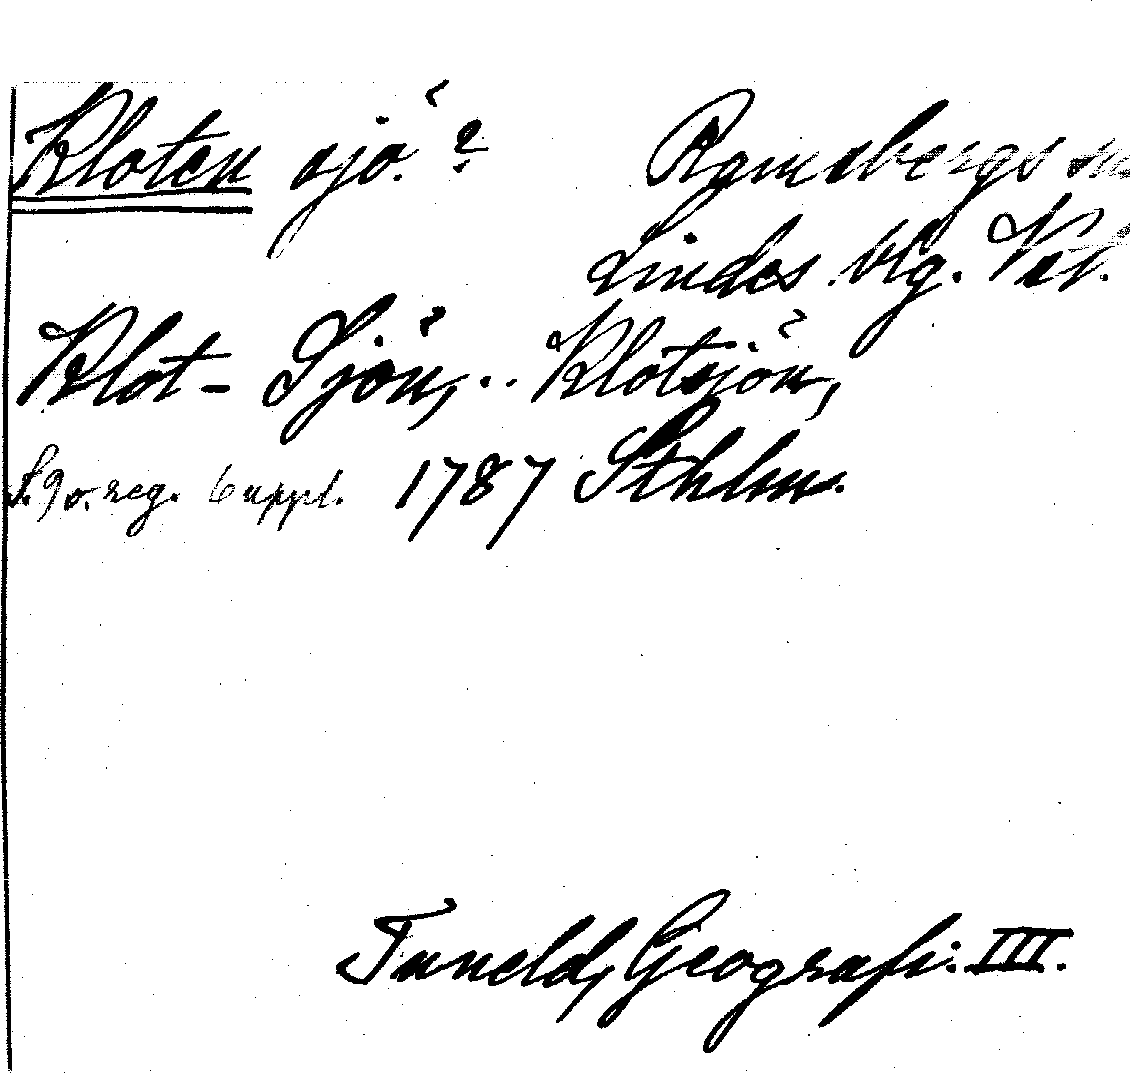 Kloten sjö. ? Ramsbergs sn
Lindes blg. Vstl.
Klot-Sjön, .. Klotsjön,
S. 9 o. reg. 6 uppl. 1787 Sthlm.
Tuneld, Geografi. III.